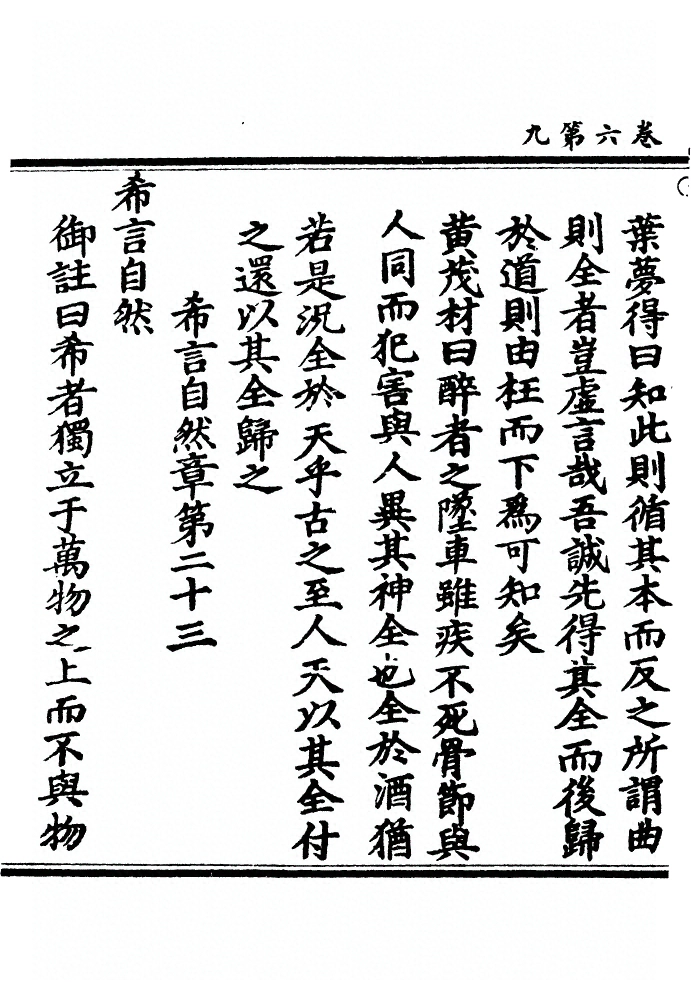 卷六第九
葉夢得曰知此則循其本而反之所謂曲
則全者豈虛言哉吾誠先得其全而後歸
於道則由枉而下爲可知矣
黄茂材曰醉者之墜車雖疾不死骨節與
人同而犯害與人異其神全也全於酒猶
若是况全於天乎古之至人天以其全付
之還以其全歸之
希言自然章第二十三
希言自然
御註曰希者獨立于萬物之上而不與物